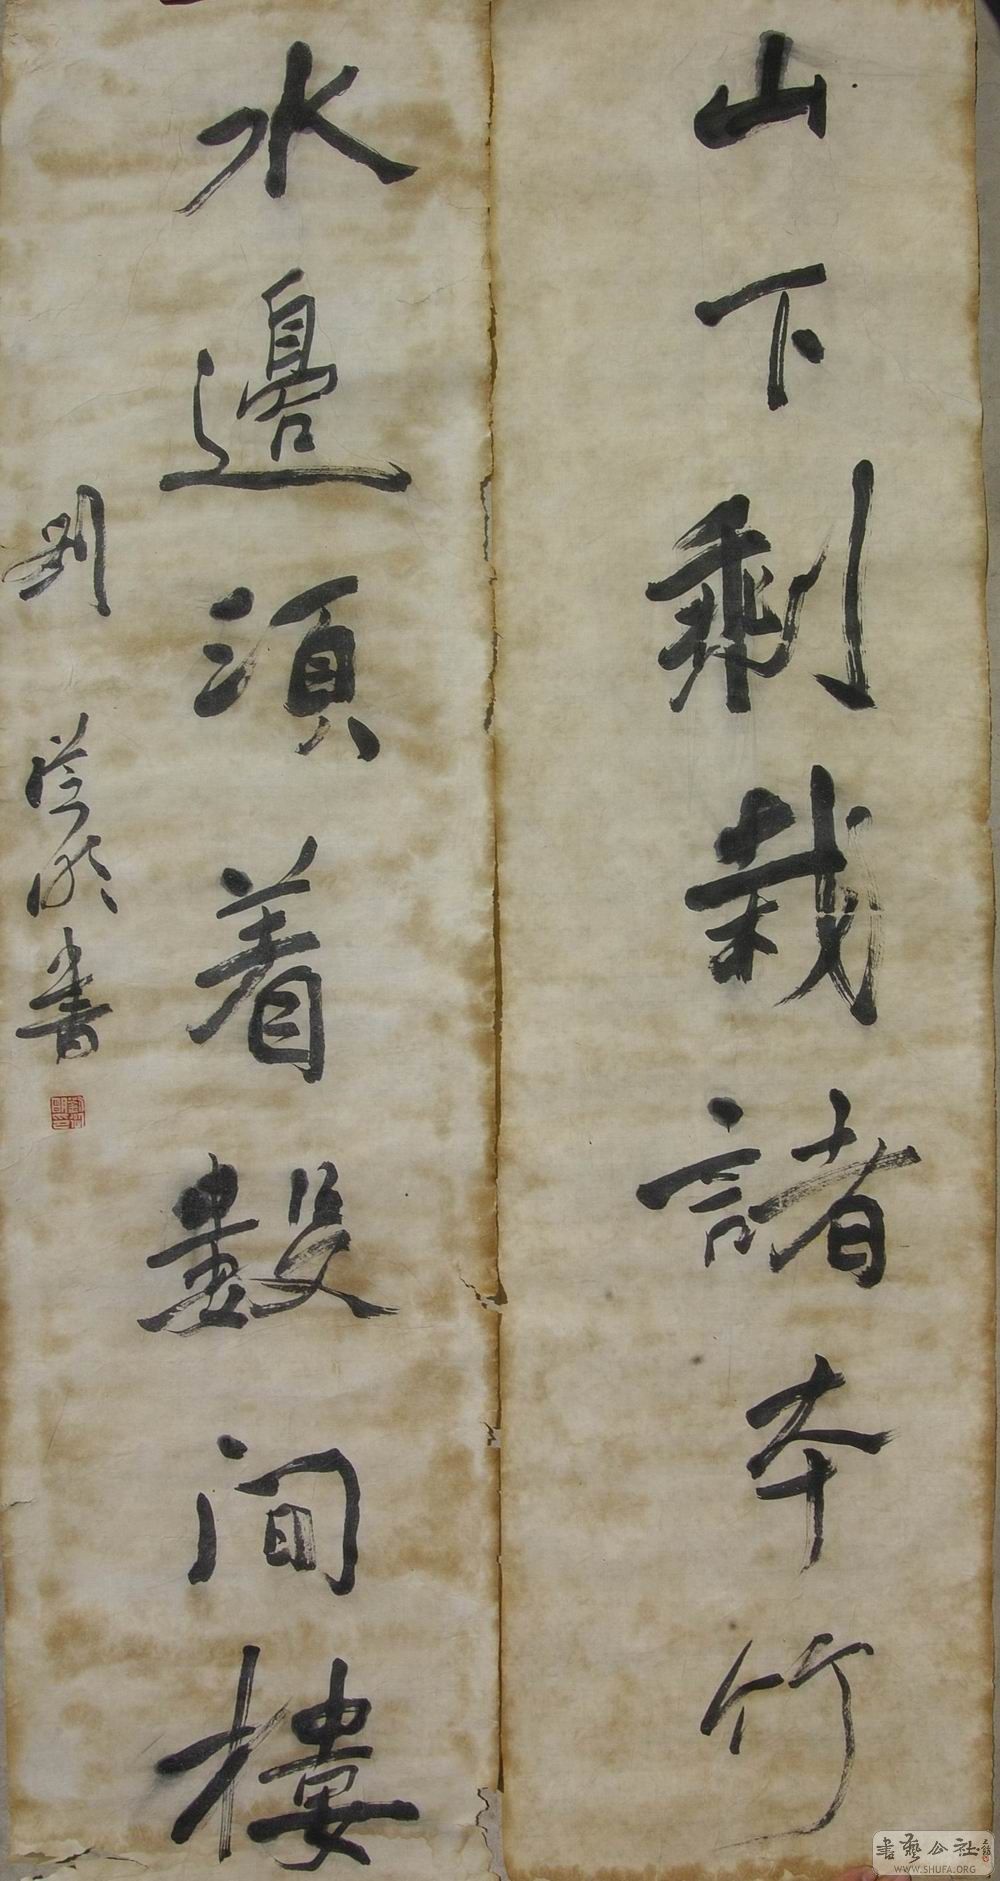 山下剩栽諸本竹
水邊須着數間樓
劉
書
書藝公社
WWW.SHUFA.ORG